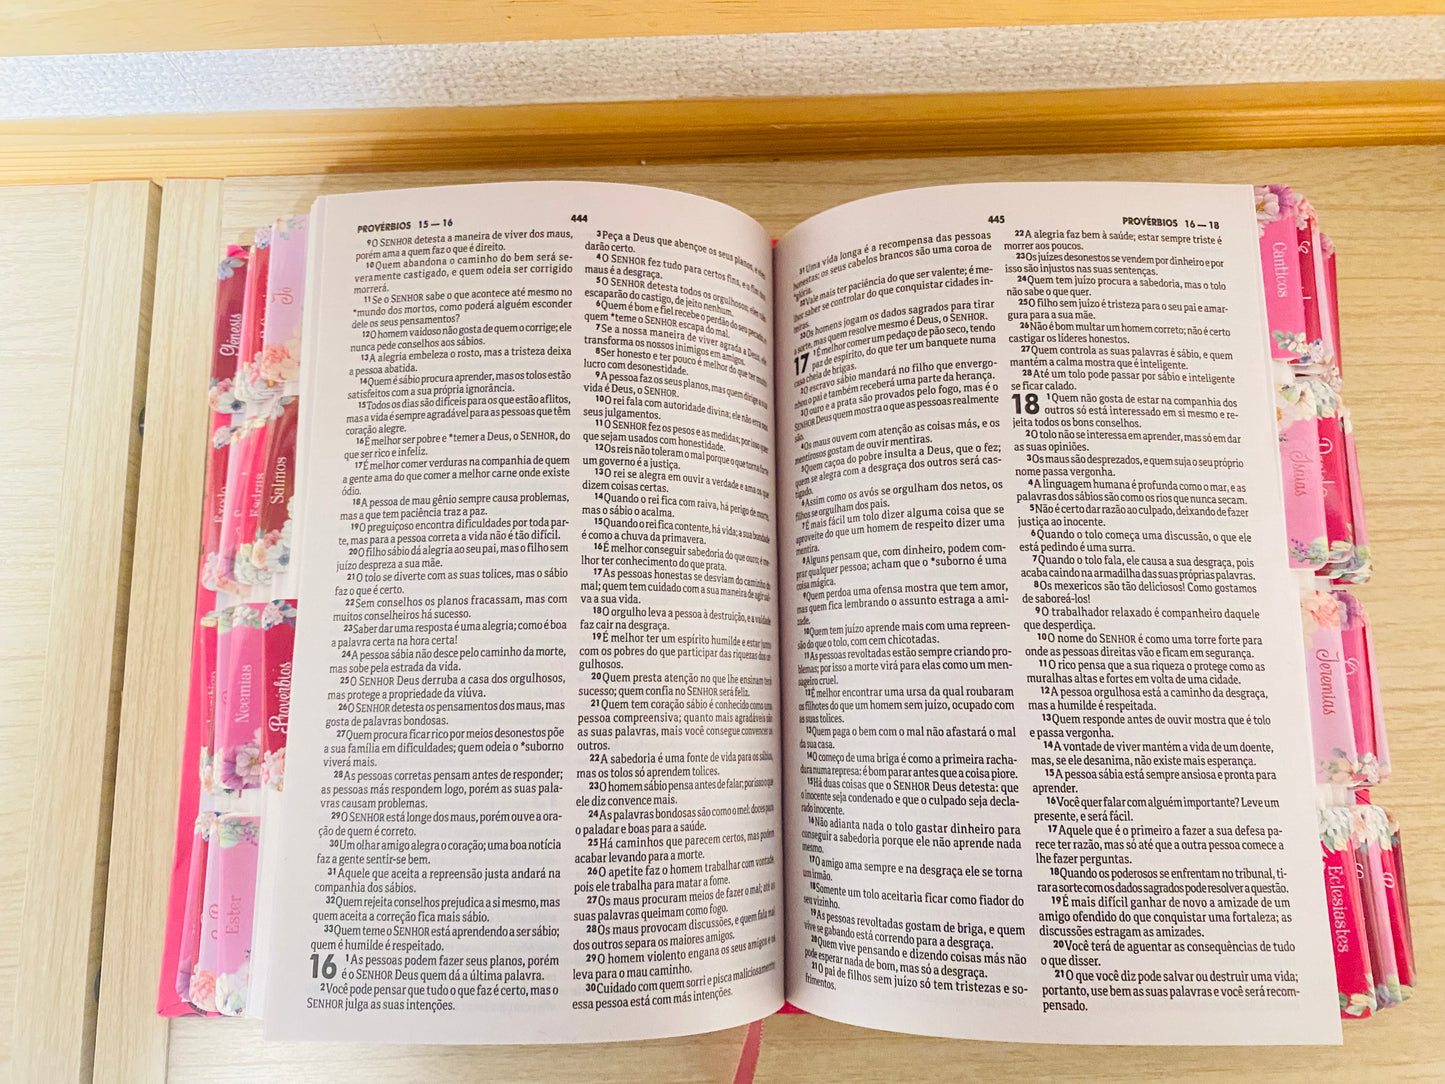 PROVÉRBIOS 15 — 16
444
9O SENHOR detesta a maneira de viver dos maus,
porém ama a quem faz o que é direito.
10Quem abandona o caminho do bem será se-
veramente castigado, e quem odeia ser corrigido
morrerá.
11Se o SENHOR sabe o que acontece até mesmo no
*mundo dos mortos, como poderá alguém esconder
dele os seus pensamentos?
12O homem vaidoso não gosta de quem o corrige; ele
nunca pede conselhos aos sábios.
13A alegria embeleza o rosto, mas a tristeza deixa
a pessoa abatida.
14Quem é sábio procura aprender, mas os tolos estão
satisfeitos com a sua própria ignorância.
15Todos os dias são difíceis para os que estão aflitos,
mas a vida é sempre agradável para as pessoas que têm
coração alegre.
16É melhor ser pobre e *temer a Deus, o SENHOR, do
que ser rico e infeliz.
17É melhor comer verduras na companhia de quem
a gente ama do que comer a melhor carne onde existe
ódio.
18A pessoa de mau gênio sempre causa problemas,
mas a que tem paciência traz a paz.
19O preguiçoso encontra dificuldades por toda par-
te, mas para a pessoa correta a vida não é tão difícil.
20O filho sábio dá alegria ao seu pai, mas o filho sem
juízo despreza a sua mãe.
21O tolo se diverte com as suas tolices, mas o sábio
faz o que é certo.
22Sem conselhos os planos fracassam, mas com
muitos conselheiros há sucesso.
23Saber dar uma resposta é uma alegria; como é boa
a palavra certa na hora certa!
24A pessoa sábia não desce pelo caminho da morte,
mas sobe pela estrada da vida.
25O SENHOR Deus derruba a casa dos orgulhosos,
mas protege a propriedade da viúva.
26O SENHOR detesta os pensamentos dos maus, mas
gosta de palavras bondosas.
27Quem procura ficar rico por meios desonestos põe
a sua família em dificuldades; quem odeia o *suborno
viverá mais.
28As pessoas corretas pensam antes de responder;
as pessoas más respondem logo, porém as suas pala-
vras causam problemas.
29O SENHOR está longe dos maus, porém ouve a ora-
ção de quem é correto.
30Um olhar amigo alegra o coração; uma boa notícia
faz a gente sentir-se bem.
31Aquele que aceita a repreensão justa andará na
companhia dos sábios.
32Quem rejeita conselhos prejudica a si mesmo, mas
quem aceita a correção fica mais sábio.
33Quem teme o SENHOR está aprendendo a ser sábio;
quem é humilde é respeitado.
16 1As pessoas podem fazer seus planos, porém
é o SENHOR Deus quem dá a última palavra.
2Você pode pensar que tudo o que faz é certo, mas o
SENHOR julga as suas intenções.
3Peça a Deus que abençoe os seus planos, e eles
darão certo.
4O SENHOR fez tudo para certos fins, e o fim dos
maus é a desgraça.
5O SENHOR detesta todos os orgulhosos; eles não
escaparão do castigo, de jeito nenhum.
6Quem é bom e fiel recebe o perdão do seu pecado, e
quem *teme o SENHOR escapa do mal.
7Se a nossa maneira de viver agrada a Deus, ele
transforma os nossos inimigos em amigos.
8Ser honesto e ter pouco é melhor do que ter muito
lucro com desonestidade.
9A pessoa faz os seus planos, mas quem dirige a sua
vida é Deus, o SENHOR.
10O rei fala com autoridade divina; ele não erra nos
seus julgamentos.
11O SENHOR fez os pesos e as medidas; por isso quer
que sejam usados com honestidade.
12Os reis não toleram o mal porque o que torna forte
um governo é a justiça.
13O rei se alegra em ouvir a verdade e ama os que
dizem coisas certas.
14Quando o rei fica com raiva, há perigo de morte,
mas o sábio o acalma.
15Quando o rei fica contente, há vida; a sua bondade
é como a chuva da primavera.
16É melhor conseguir sabedoria do que ouro; é me-
lhor ter conhecimento do que prata.
17As pessoas honestas se desviam do caminho do
mal; quem tem cuidado com a sua maneira de agir sal-
va a sua vida.
18O orgulho leva a pessoa à destruição, e a vaidade
faz cair na desgraça.
19É melhor ter um espírito humilde e estar junto
com os pobres do que participar das riquezas dos or-
gulhosos.
20Quem presta atenção no que lhe ensinam terá
sucesso; quem confia no SENHOR será feliz.
21Quem tem coração sábio é conhecido como uma
pessoa compreensiva; quanto mais agradáveis são
as suas palavras, mais você consegue convencer os
outros.
22A sabedoria é uma fonte de vida para os sábios,
mas os tolos só aprendem tolices.
23O homem sábio pensa antes de falar; por isso o que
ele diz convence mais.
24As palavras bondosas são como o mel: doces para
o paladar e boas para a saúde.
25Há caminhos que parecem certos, mas podem
acabar levando para a morte.
26O apetite faz o homem trabalhar com vontade
pois ele trabalha para matar a fome.
27Os maus procuram meios de fazer o mal; até as
suas palavras queimam como fogo.
28Os maus provocam discussões, e quem fala mal
dos outros separa os maiores amigos.
29O homem violento engana os seus amigos e os
leva para o mau caminho.
30Cuidado com quem sorri e pisca maliciosamente
essa pessoa está com más intenções.
445
PROVÉRBIOS 16 — 18
31Uma vida longa é a recompensa das pessoas
honestas; os seus cabelos brancos são uma coroa de
*glória.
32Vale mais ter paciência do que ser valente; é me-
lhor saber se controlar do que conquistar cidades in-
teiras.
33Os homens jogam os dados sagrados para tirar
a sorte, mas quem resolve mesmo é Deus, o SENHOR.
17 1É melhor comer um pedaço de pão seco, tendo
paz de espírito, do que ter um banquete numa
casa cheia de brigas.
2O escravo sábio mandará no filho que envergo-
nhou o pai e também receberá uma parte da herança.
3O ouro e a prata são provados pelo fogo, mas é o
SENHOR Deus quem mostra o que as pessoas realmente
são.
4Os maus ouvem com atenção as coisas más, e os
mentirosos gostam de ouvir mentiras.
5Quem caçoa do pobre insulta a Deus, que o fez;
quem se alegra com a desgraça dos outros será cas-
tigado.
6Assim como os avós se orgulham dos netos, os
filhos se orgulham dos pais.
7É mais fácil um tolo dizer alguma coisa que se
aproveite do que um homem de respeito dizer uma
mentira.
8Alguns pensam que, com dinheiro, podem com-
prar qualquer pessoa; acham que o *suborno é uma
coisa mágica.
9Quem perdoa uma ofensa mostra que tem amor,
mas quem fica lembrando o assunto estraga a ami-
zade.
10Quem tem juízo aprende mais com uma repreen-
são do que o tolo, com cem chicotadas.
11As pessoas revoltadas estão sempre criando pro-
blemas; por isso a morte virá para elas como um men-
sageiro cruel.
12É melhor encontrar uma ursa da qual roubaram
os filhotes do que um homem sem juízo, ocupado com
as suas tolices.
13Quem paga o bem com o mal não afastará o mal
da sua casa.
14O começo de uma briga é como a primeira racha-
dura numa represa: é bom parar antes que a coisa piore.
15Há duas coisas que o SENHOR Deus detesta: que o
inocente seja condenado e que o culpado seja decla-
rado inocente.
16Não adianta nada o tolo gastar dinheiro para
conseguir a sabedoria porque ele não aprende nada
mesmo.
17O amigo ama sempre e na desgraça ele se torna
um irmão.
18Somente um tolo aceitaria ficar como fiador do
seu vizinho.
19As pessoas revoltadas gostam de briga, e quem
vive se gabando está correndo para a desgraça.
20Quem vive pensando e dizendo coisas más não
pode esperar nada de bom, mas só a desgraça.
21O pai de filhos sem juízo só tem tristezas e so-
frimentos.
22A alegria faz bem à saúde; estar sempre triste é
morrer aos poucos.
23Os juízes desonestos se vendem por dinheiro e por
isso são injustos nas suas sentenças.
24Quem tem juízo procura a sabedoria, mas o tolo
não sabe o que quer.
25O filho sem juízo é tristeza para o seu pai e amar-
gura para a sua mãe.
26Não é bom multar um homem correto; não é certo
castigar os líderes honestos.
27Quem controla as suas palavras é sábio, e quem
mantém a calma mostra que é inteligente.
28Até um tolo pode passar por sábio e inteligente
se ficar calado.
18 1Quem não gosta de estar na companhia dos
outros só está interessado em si mesmo e re-
jeita todos os bons conselhos.
2O tolo não se interessa em aprender, mas só em dar
as suas opiniões.
3Os maus são desprezados, e quem suja o seu próprio
nome passa vergonha.
4A linguagem humana é profunda como o mar, e as
palavras dos sábios são como os rios que nunca secam.
5Não é certo dar razão ao culpado, deixando de fazer
justiça ao inocente.
6Quando o tolo começa uma discussão, o que ele
está pedindo é uma surra.
7Quando o tolo fala, ele causa a sua desgraça, pois
acaba caindo na armadilha das suas próprias palavras.
8Os mexericos são tão deliciosos! Como gostamos
de saboreá-los!
9O trabalhador relaxado é companheiro daquele
que desperdiça.
10O nome do SENHOR é como uma torre forte para
onde as pessoas direitas vão e ficam em segurança.
11O rico pensa que a sua riqueza o protege como as
muralhas altas e fortes em volta de uma cidade.
12A pessoa orgulhosa está a caminho da desgraça,
mas a humilde é respeitada.
13Quem responde antes de ouvir mostra que é tolo
e passa vergonha.
14A vontade de viver mantém a vida de um doente,
mas, se ele desanima, não existe mais esperança.
15A pessoa sábia está sempre ansiosa e pronta para
aprender.
16Você quer falar com alguém importante? Leve um
presente, e será fácil.
17Aquele que é o primeiro a fazer a sua defesa pa-
rece ter razão, mas só até que a outra pessoa comece a
lhe fazer perguntas.
18Quando os poderosos se enfrentam no tribunal, ti-
rar a sorte com os dados sagrados pode resolver a questão.
19É mais difícil ganhar de novo a amizade de um
amigo ofendido do que conquistar uma fortaleza; as
discussões estragam as amizades.
20Você terá de aguentar as consequências de tudo
o que disser.
21O que você diz pode salvar ou destruir uma vida;
portanto, use bem as suas palavras e você será recom-
pensado.
Gênesis
Jó
Êxodo
Esdras
Salmos
Neemias
Provérbios
Ester
Cânticos
Isaías
Jeremias
Eclesiastes